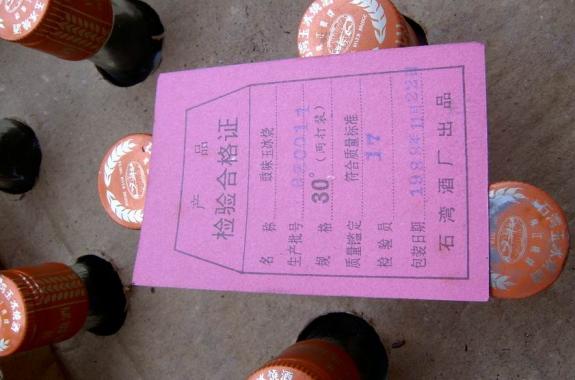 产品
检验合格证
名称 豉味玉冰烧
生产批号
规格 30°(两打装)
质量鉴定 符合质量标准
检验员 17
包装日期 1988年11月22日
石湾酒厂出品